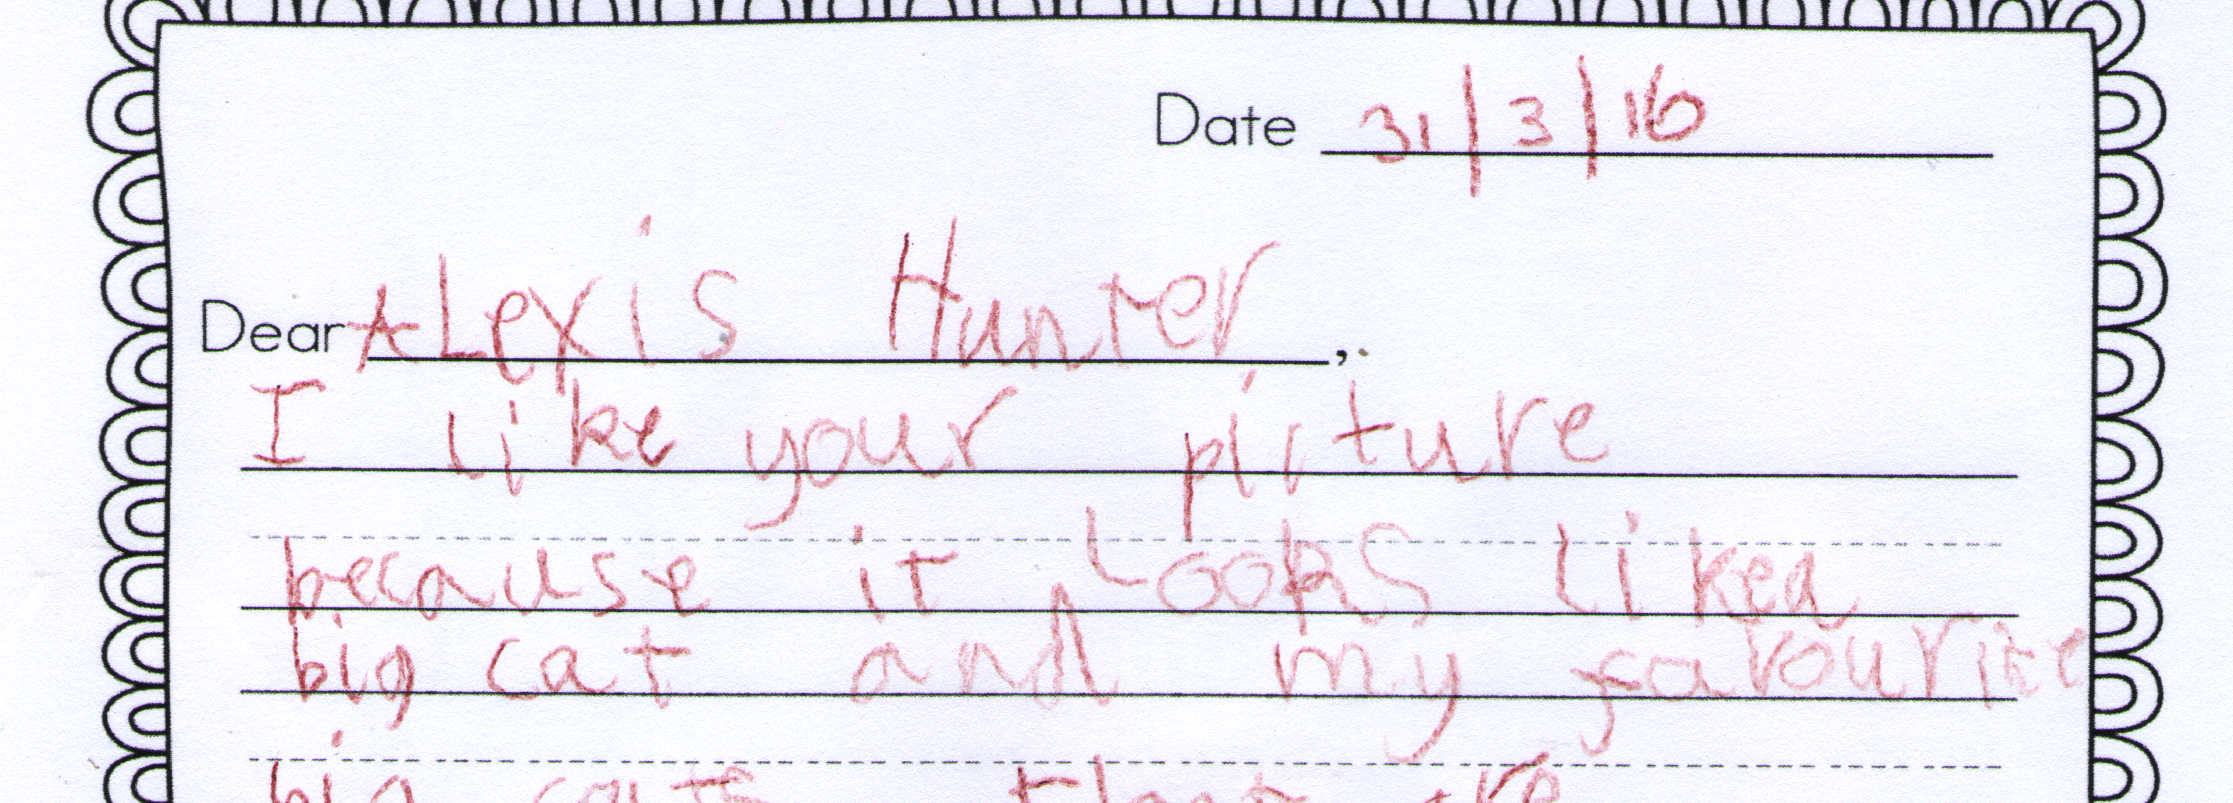 Date 31/3/16
Dear ALexis Hunter,
I like your picture
because it Looks like a
big cat and my favourite
big cats